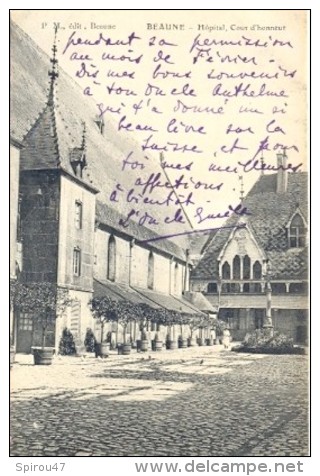 P. M., édit, Beaune
BEAUNE - Hôpital, Cour d'honneur
pendant sa permission
au mois de Février.
Dis mes bons souvenirs
à ton oncle Anthelme
qui t'a donné un si
beau livre sur la
Suisse, et pour
toi mes meilleures
affections
à bientôt
t'oncle
© Spirou47
www.delcampe.net